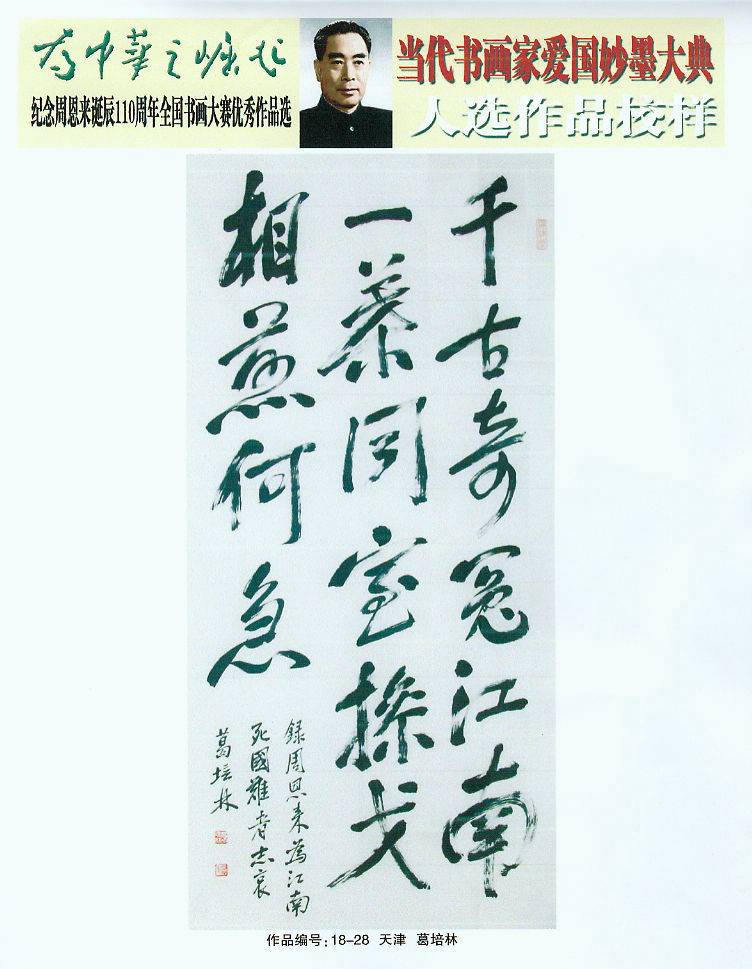 为中華之崛起
纪念周恩来诞辰110周年全国书画大赛优秀作品选
当代书画家爱国妙墨大典
入选作品校样
千古奇冤江南
一葉同室操戈
相煎何急
録周恩来為江南
死國難者志哀
葛培林
作品编号:18-28 天津 葛培林